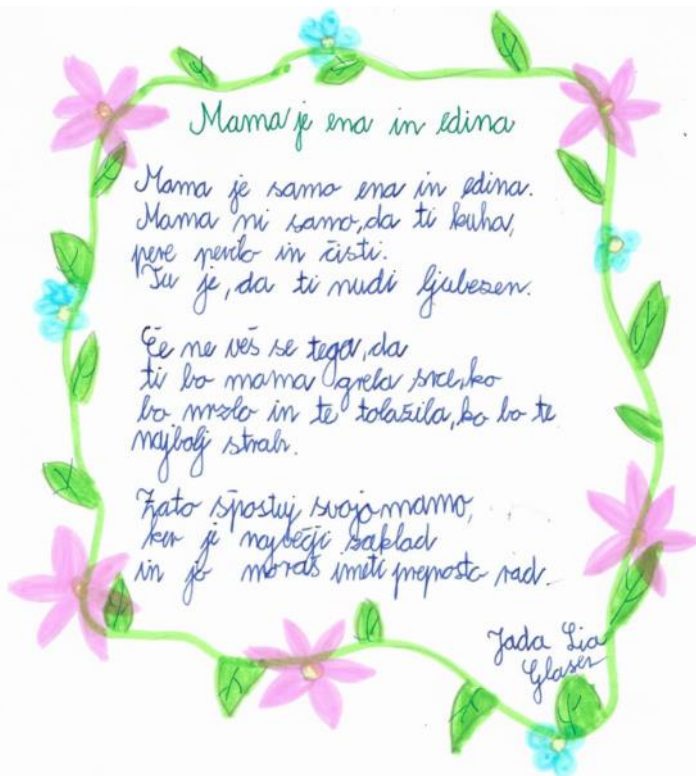 Mama je ena in edina
Mama je samo ena in edina.
Mama ni samo, da ti kuha,
pere perilo in čisti.
Tu je, da ti nudi ljubezen.
Če ne veš se tega, da
ti bo mama grela srce, ko
bo mrzlo in te tolažila, ko bo te
najbolj strah.
Zato spostuj svojo mamo,
ker je največji zaklad
in jo moraš imeti preprosto rad.
Jada Lia
Glaser